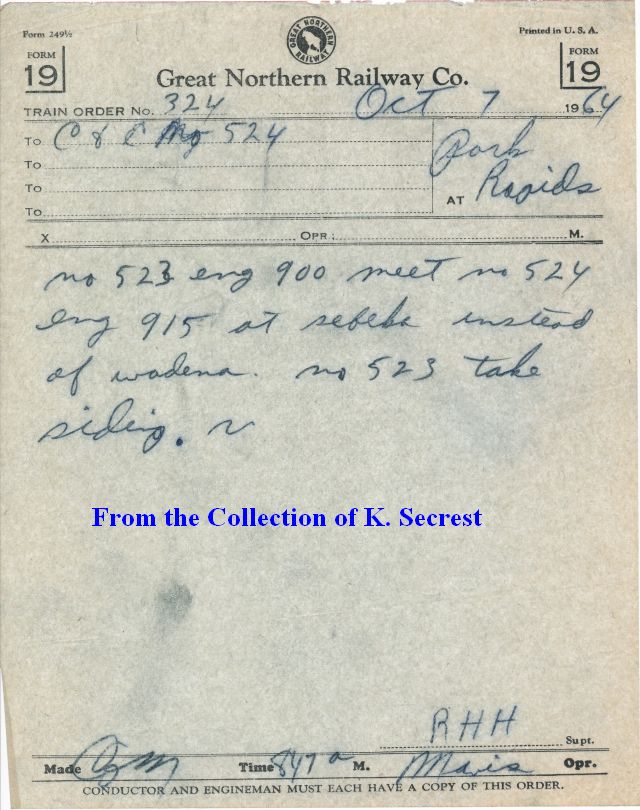 Form 249½
Printed in U. S. A.
GREAT NORTHERN RAILWAY
FORM 19
FORM 19
Great Northern Railway Co.
TRAIN ORDER No. 324 Oct 7 1964
To C & E No 524
To
To
To
Park Rapids
AT
X OPR: M.
no 523 eng 900 meet no 524
eng 915 at sebeka instead
of wadena. no 523 take
siding.
From the Collection of K. Secrest
RHH Supt.
Made Time 847 a M. Mavis Opr.
CONDUCTOR AND ENGINEMAN MUST EACH HAVE A COPY OF THIS ORDER.